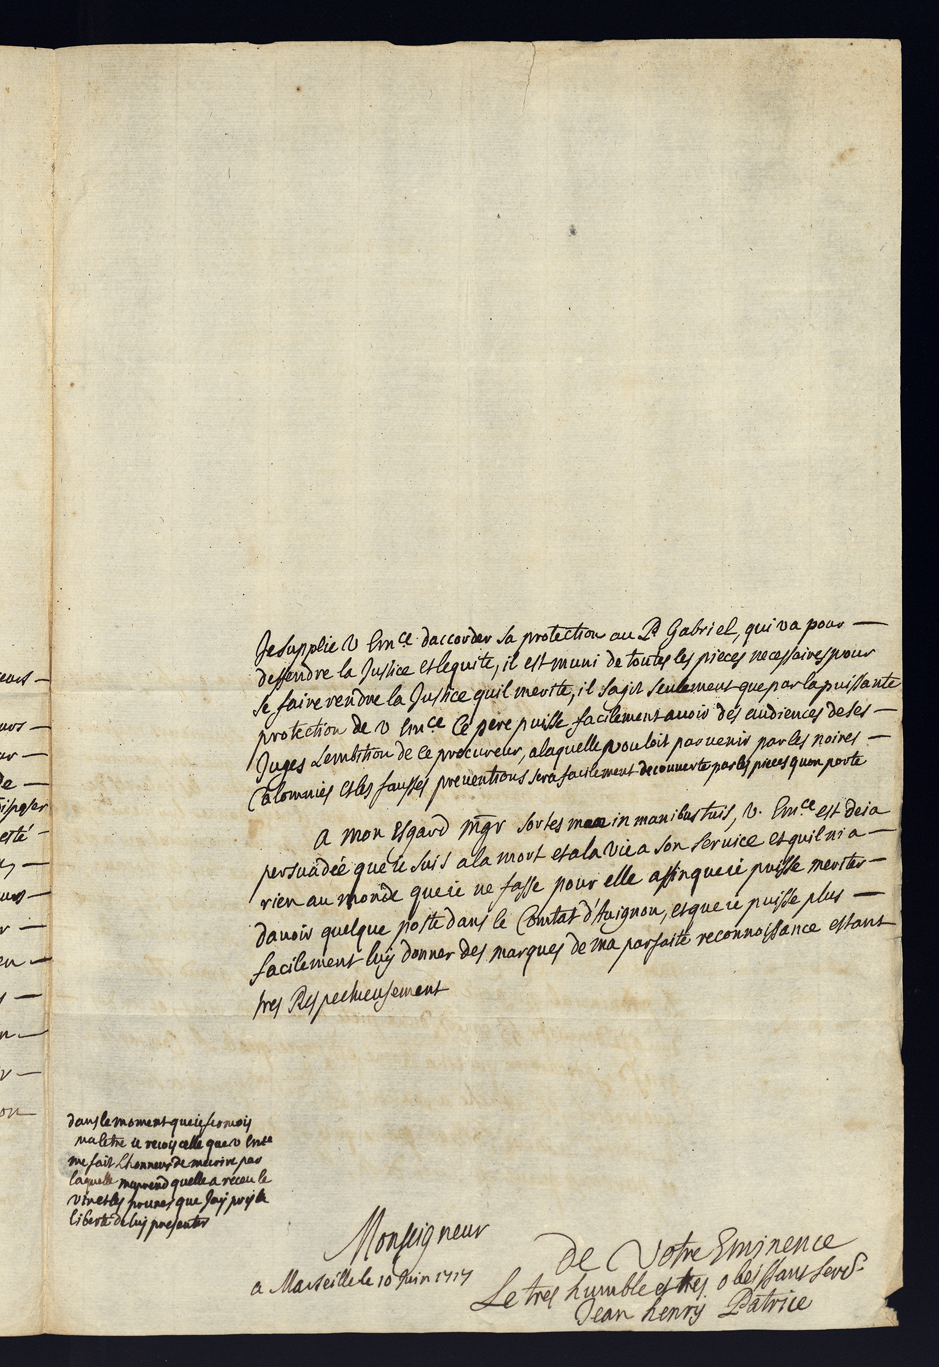 Je supplie V Em.ce daccorder sa protection au P. Gabriel, qui va pour —
deffendre la Justice et lequite, il est muni de toutes les pieces necessaires pour
se faire rendre la Justice quil merite, il sagit seulement que par la puissante
protection de V Em.ce Ce pere puisse facilement auoir des audiences de ses —
Juges Lembition de ce procureur, a laquelle vouloit paruenir par les noires —
Calomnies et les fausses preuentions sera facilement decouuerte par les pieces quon porte
A mon Esgard Mgr sortes meae in manibus tuis, V. Em.ce est deia
persuadée que ie suis a la mort et a la vie a son seruice et quil ni a —
rien au monde que ie ne fasse pour elle affinque ie puisse meriter —
dauoir quelque poste dans le Comtat d'Auignon, et que ie puisse plus —
facilement luy donner des marques de ma parfaite reconnoissance estant
tres Respectueusement
dans le moment que ie fermois
ma letre ie recois celle que V Em.ce
me fait Lhonneur de mecrire par
laquelle maprend quelle a receu le
vin et les prunes que Jay pris la
liberté de luy presenter
Monseigneur
a Marseille le 10 Juin 1717
de Votre Eminence
Le tres humble et tres obeissant serv.r
Jean henry Patrice